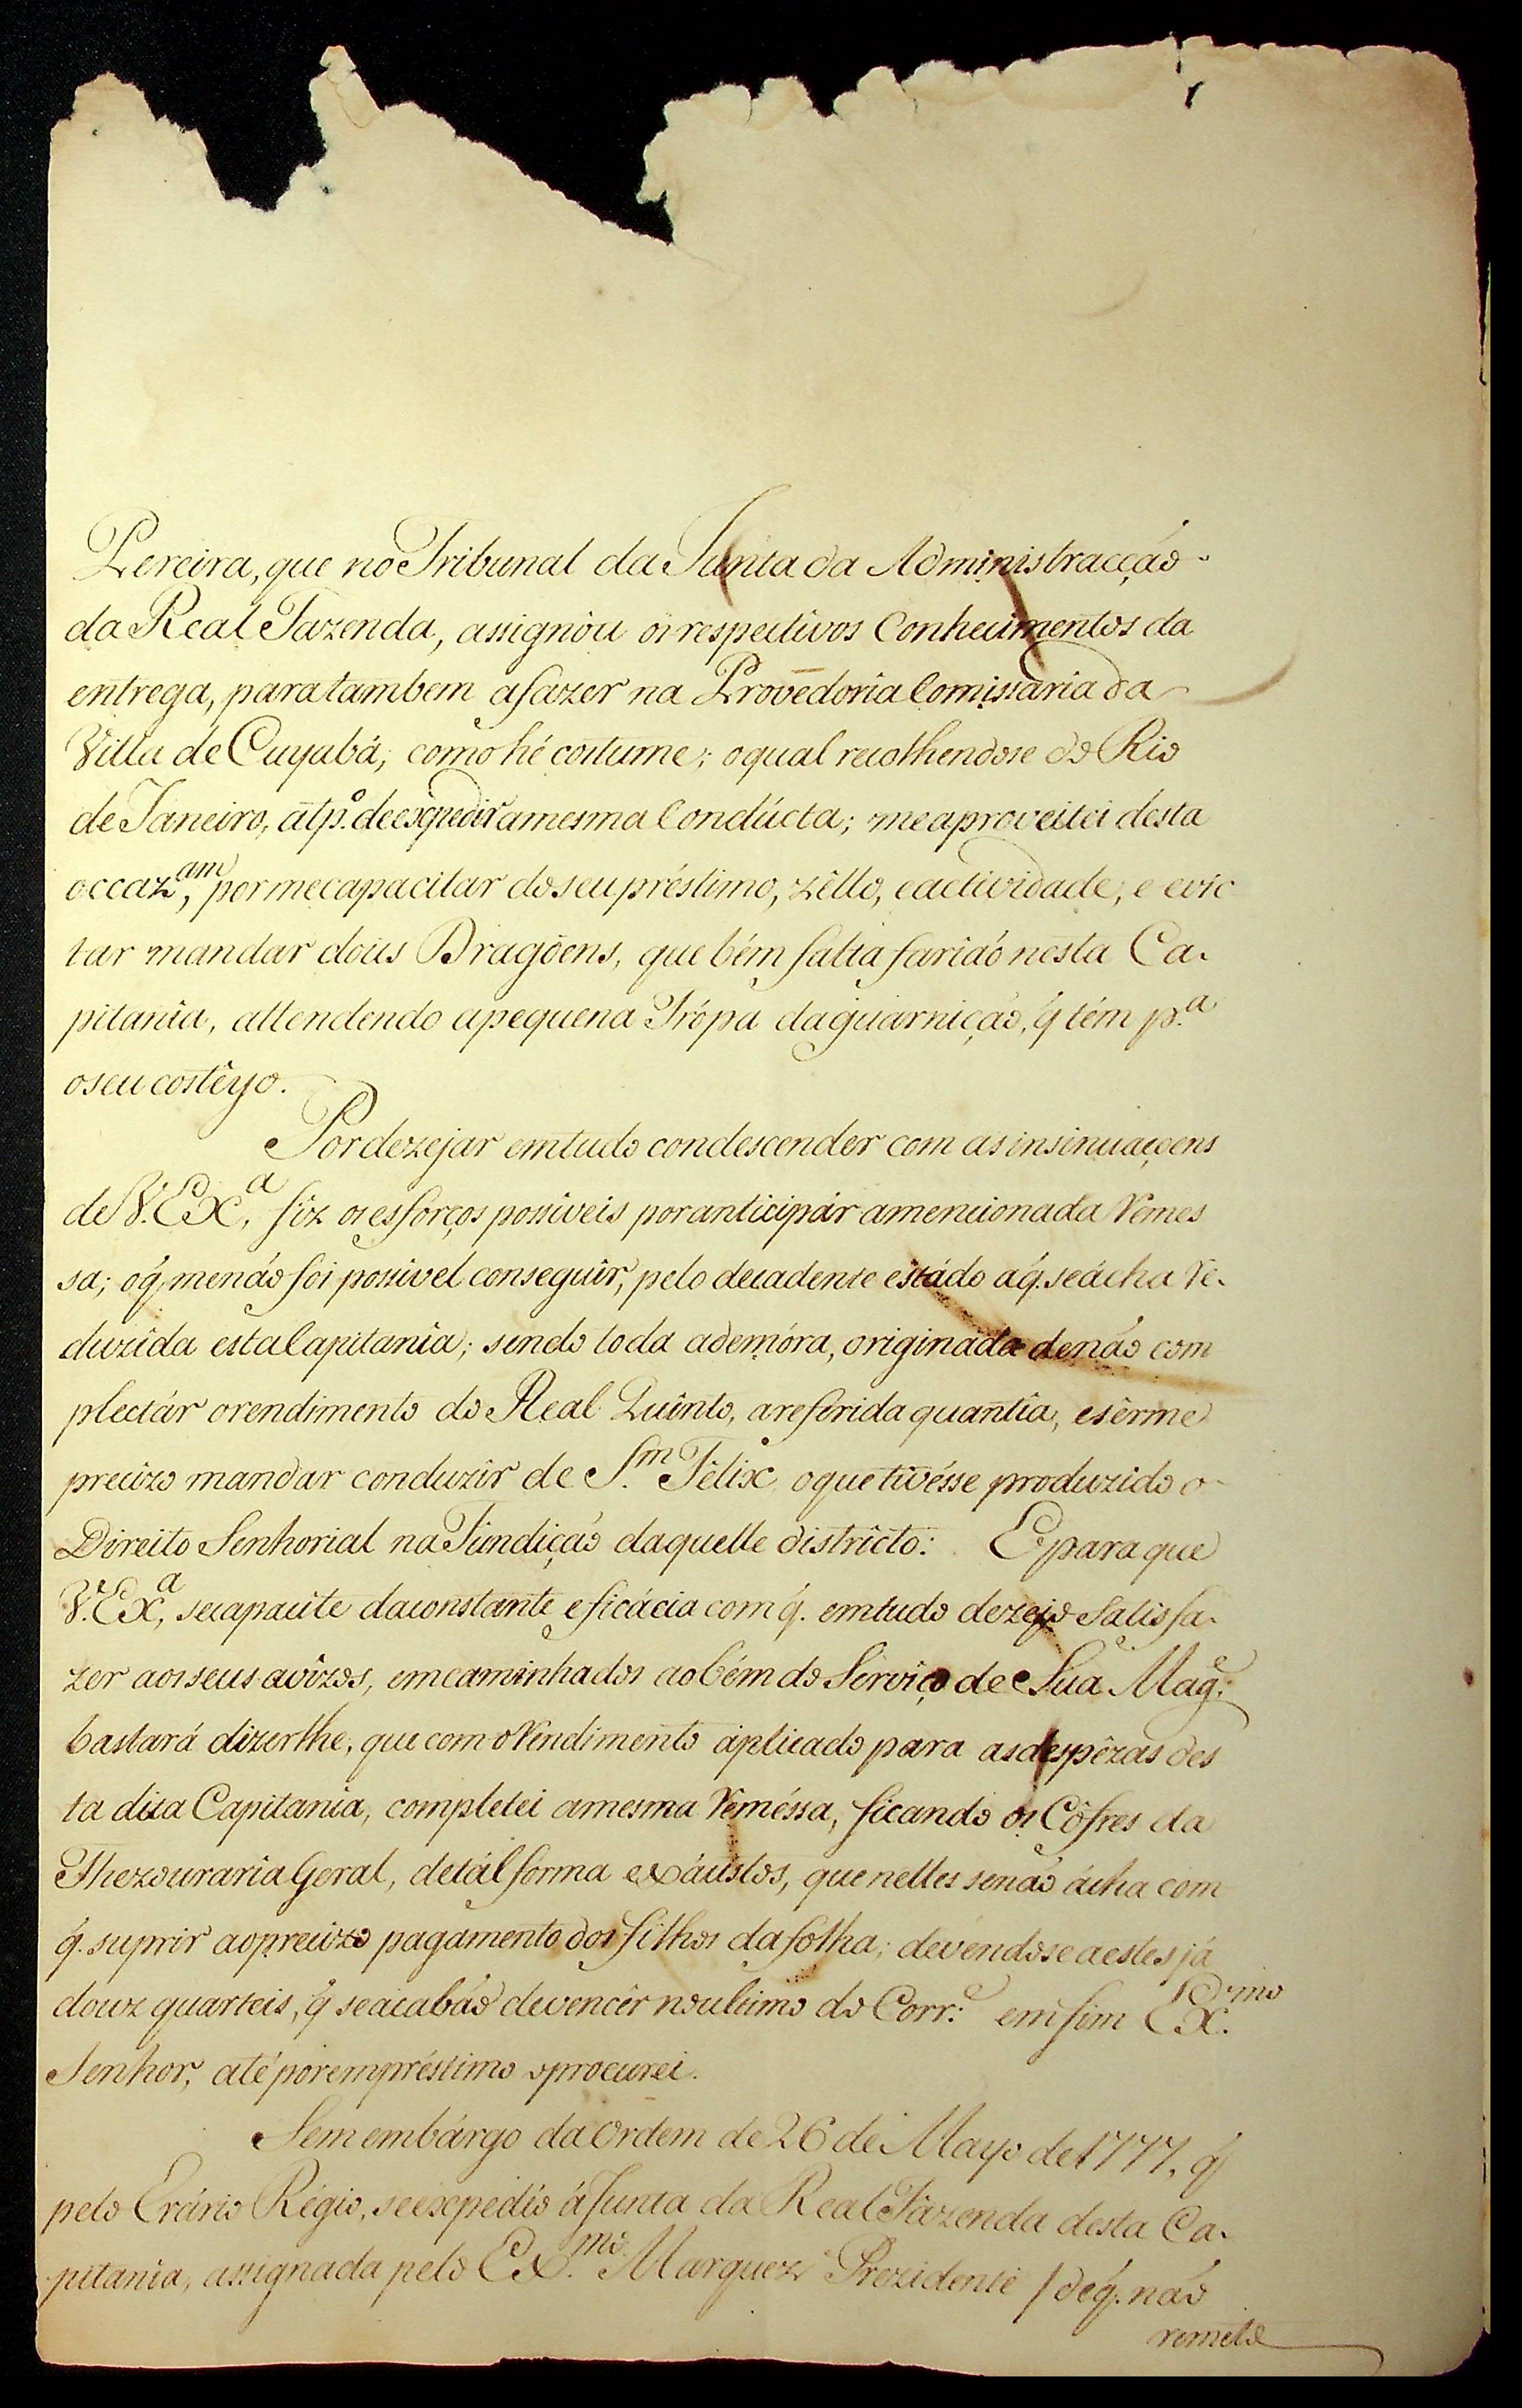 Pereira, que no Tribunal da Junta da Administracção
da Real Fazenda, assignou os respectivos Conhecimentos da
entrega, para tambem a fazer na Provedoria Comissaria da
Villa de Cuyabá, como hé costume; o qual recolhendose do Rio
de Janeiro, a tp.º de expedir a mesma Condúcta; me aproveitei desta
occaz.am, por me capacitar do seu préstimo, zêllo, e actividade, e evic
tar mandar dous Dragoens, que bém falta farião nesta Ca-
pitania, attendendo a pequena Trópa da guarnição, q̃ tém p.a
o seu costêyo.
Por dezejar em tudo condescender com as insinuaçoens
de V. Ex.a, fiz os esforços possiveis por anticipár a mencionada Remes
sa; o q̃ me não foi possivel conseguir, pelo decadente estádo a q̃. se ácha Re-
duzida esta Capitania; sendo toda a demóra, originada de não com
plectár o rendimento do Real Quinto, a referida quantia, e sêrme
precizo mandar conduzir de S.m Félix, o que tivésse produzido o
Direito Senhorial na Fundição daquelle districto: E para que
V. Ex.a, se capacite da constante eficácia com q̃. em tudo dezejo Satisfa-
zer aos seus avizos, emcaminhados ao bém do Serviço de Sua Mag.e
bastará dizerlhe, que com o Rendimento aplicado para as despêzas des
ta dita Capitania, completei a mesma Reméssa, ficando os Côfres da
Thezouraria Geral, de tál fórma exáustos, que nelles se não ácha com
q̃. suprir ao precizo pagamento dos filhos da folha; devendose a estes já
douz quarteis, q̃ se acabão de vencêr no ultimo do Corr.e em fim Ex.mo
Senhor, até por empréstimo o procurei.
Sem embárgo da Ordem de 26 de Mayo de 1777, q̃
pelo Erário Régio, se expedio á Junta da Real Fazenda desta Ca-
pitania, assignada pelo Ex.mo Marquez Prezidente / de q̃. não
remeto